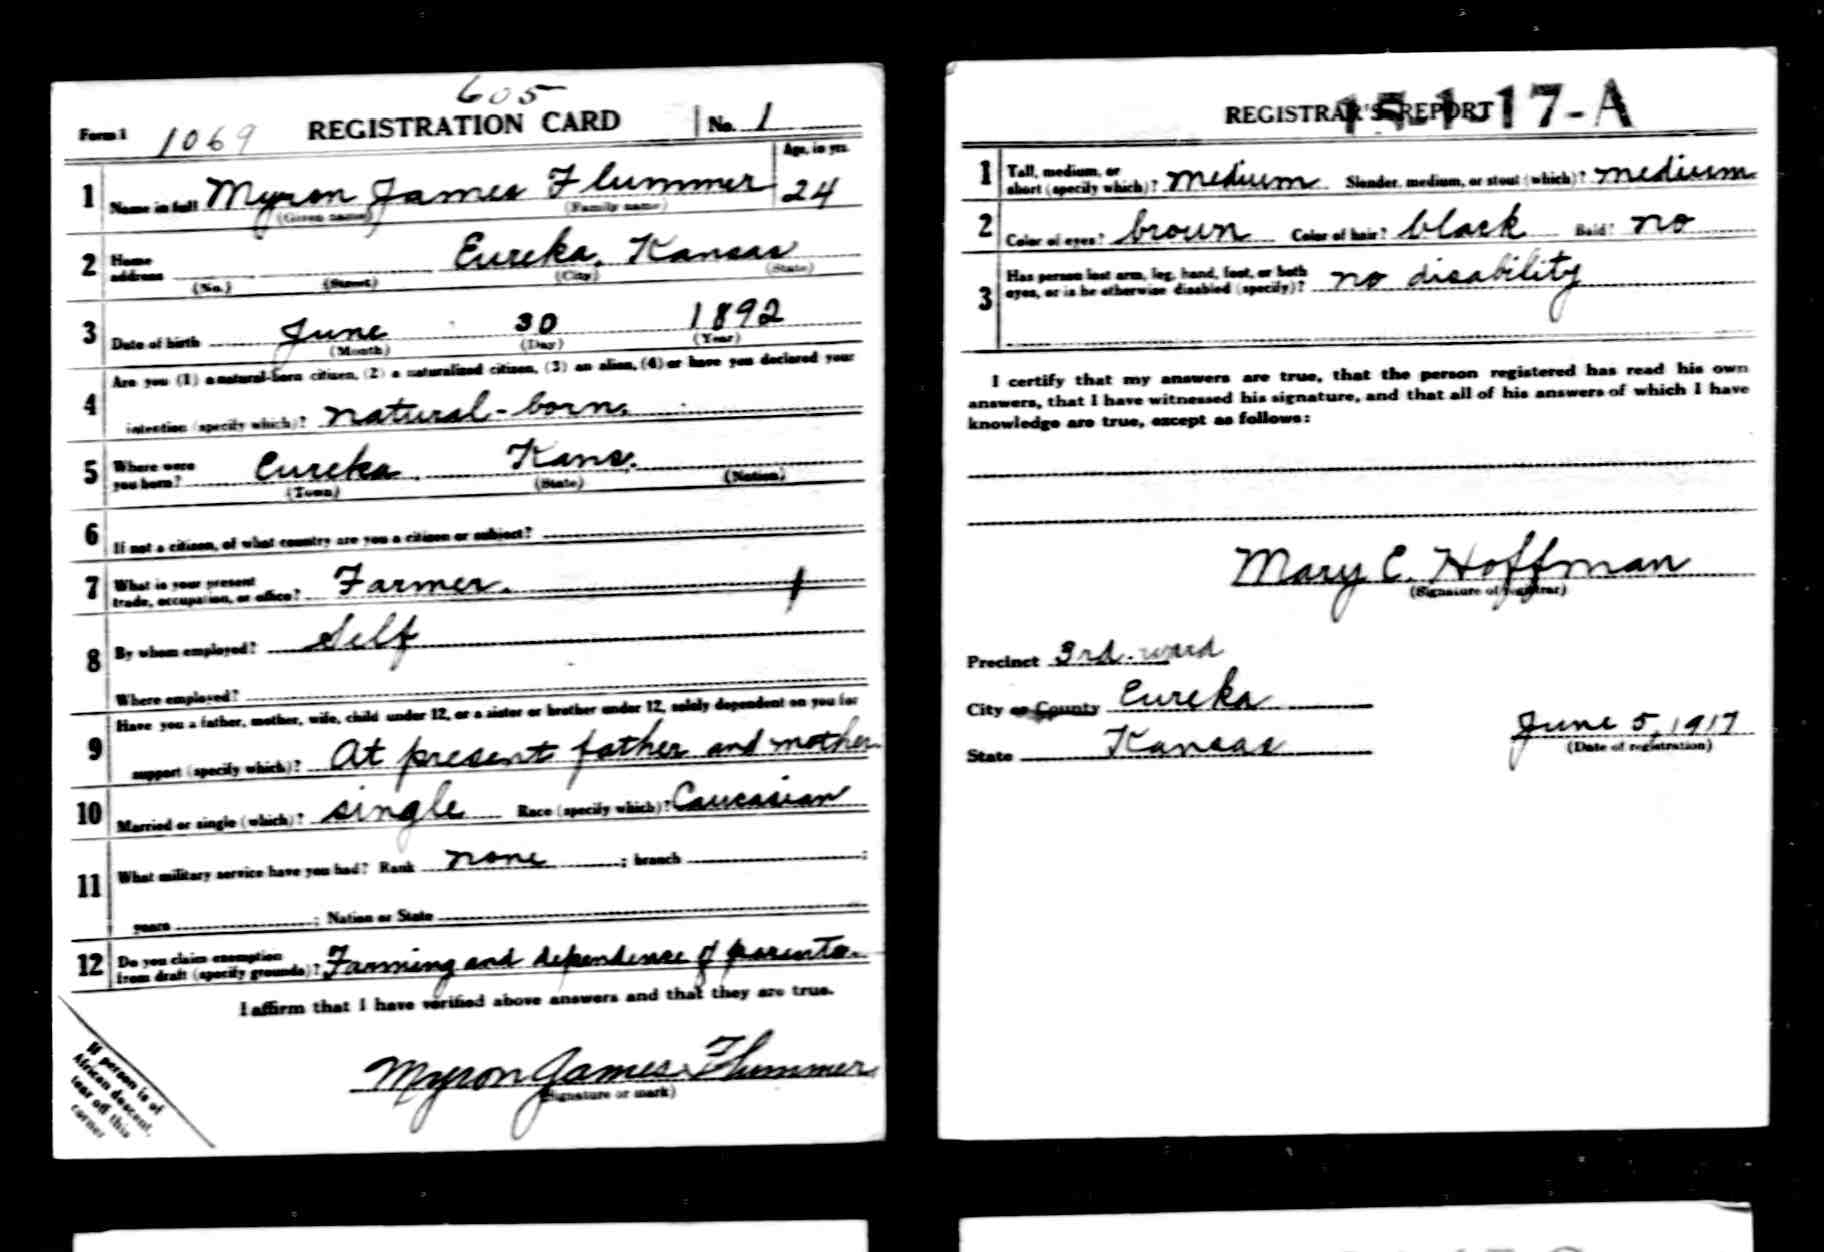 605
Form 1 1069 REGISTRATION CARD No. 1
Age, in yrs.
1 Name in full Myron James Flummer 24
(Given name) (Family name)
2 Home address Eureka, Kansas
(No.) (Street) (City) (State)
3 Date of birth June 30 1892
(Month) (Day) (Year)
4 Are you (1) a natural-born citizen, (2) a naturalized citizen, (3) an alien, (4) or have you declared your
intention (specify which)? natural-born.
5 Where were you born? Eureka, Kans.
(Town) (State) (Nation)
6 If not a citizen, of what country are you a citizen or subject?
7 What is your present trade, occupation, or office? Farmer. 1
8 By whom employed? Self
Where employed?
9 Have you a father, mother, wife, child under 12, or a sister or brother under 12, solely dependent on you for
support (specify which)? At present father and mother
10 Married or single (which)? single Race (specify which)? Caucasian
11 What military service have you had? Rank none ; branch ;
years ; Nation or State
12 Do you claim exemption from draft (specify grounds)? Farming and dependence of parents.
I affirm that I have verified above answers and that they are true.
Myron James Flummer
(Signature or mark)
If person is of
African descent,
tear off this
corner
REGISTRAR'S REPORT 17-A
1 Tall, medium, or short (specify which)? medium Slender, medium, or stout (which)? medium
2 Color of eyes? brown Color of hair? black Bald? no
3 Has person lost arm, leg, hand, foot, or both
eyes, or is he otherwise disabled (specify)? no disability
I certify that my answers are true, that the person registered has read his own
answers, that I have witnessed his signature, and that all of his answers of which I have
knowledge are true, except as follows:
Mary C. Hoffman
(Signature of registrar)
Precinct 3rd. ward
City or County Eureka
State Kansas June 5, 1917
(Date of registration)